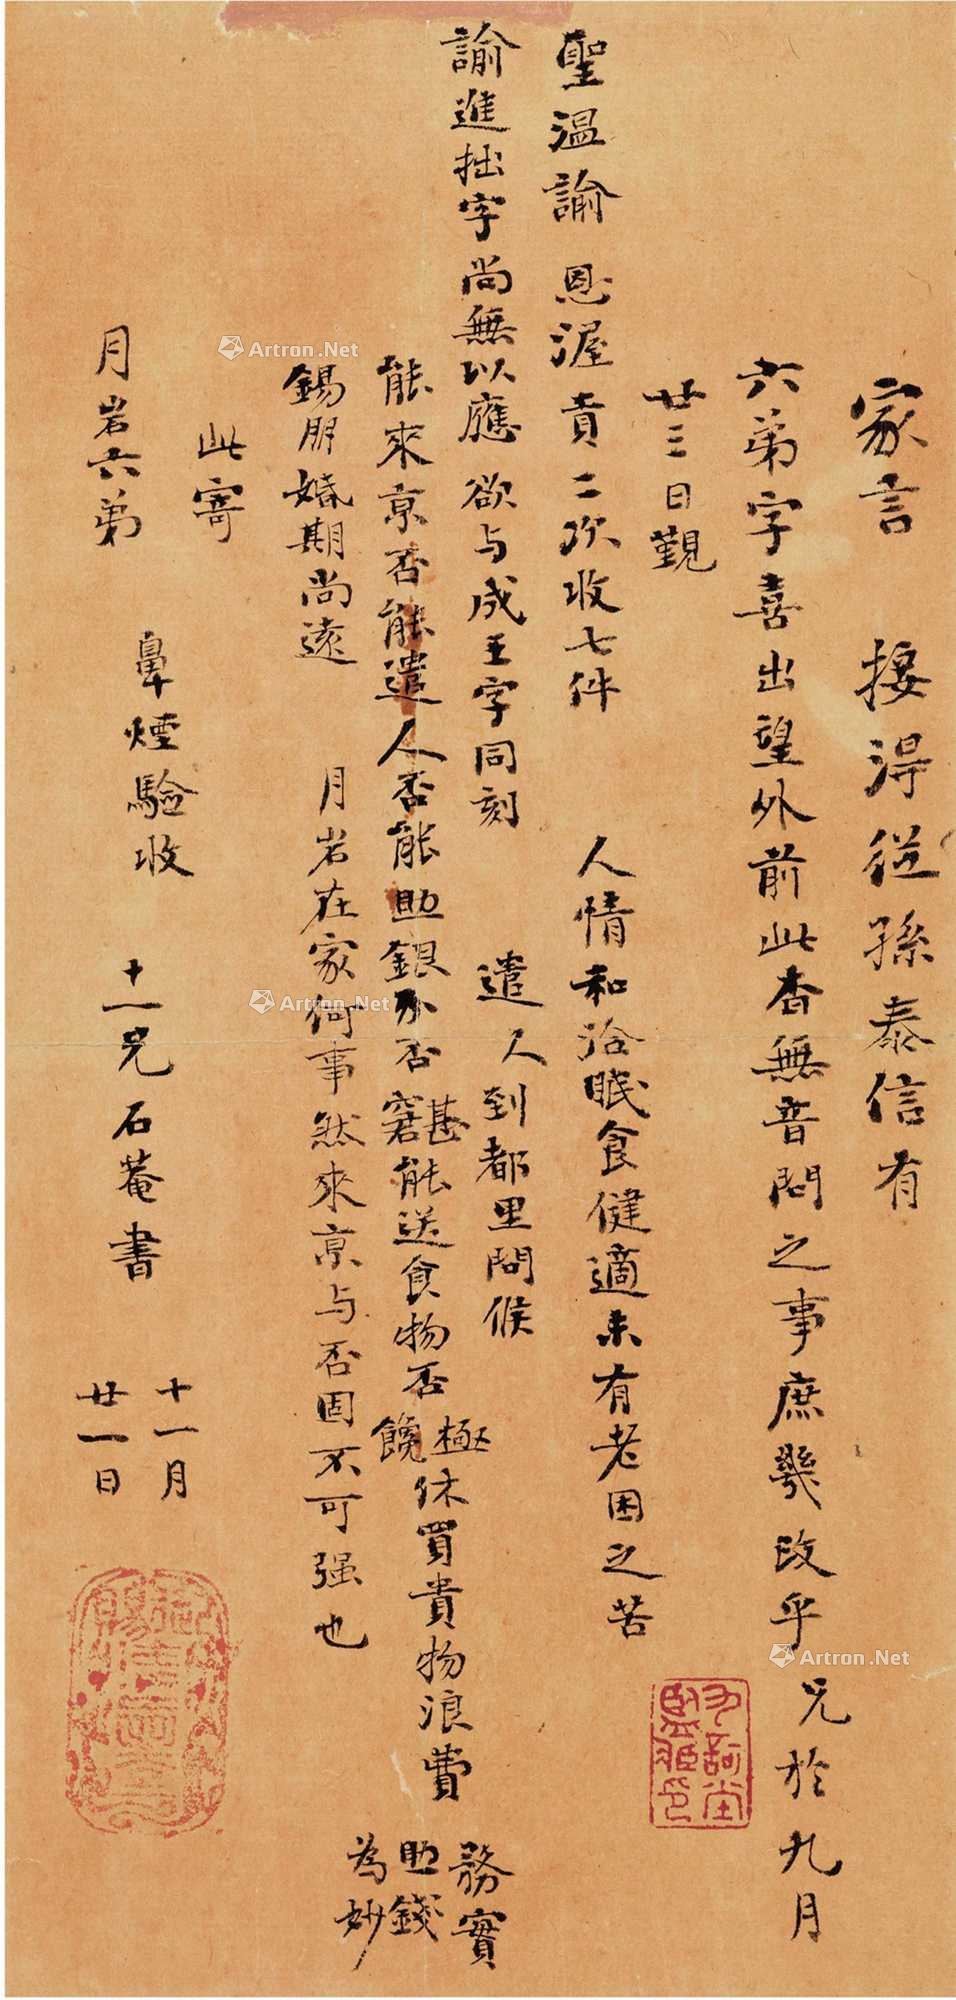 家言 接得從孫泰信有
六弟字喜出望外前此杳無音問之事庶幾改乎 兄於九月
廿三日覲
聖溫諭 恩渥貢二次收七件 人情和洽眠食健適未有老困之苦
諭進拙字尚無以應 欲与成王字同刻 遣人到都里問候
能來京否能遣人否能助銀不否窘甚能送食物否饞極休買貴物浪費務實助錢為妙
錫朋婚期尚遠 月岩在家何事然來京与否固不可强也
此寄
月岩六弟
鼻煙驗收 十一兄石菴書 十一月
廿一日
Artron.Net
Artron.Net
Artron.Net